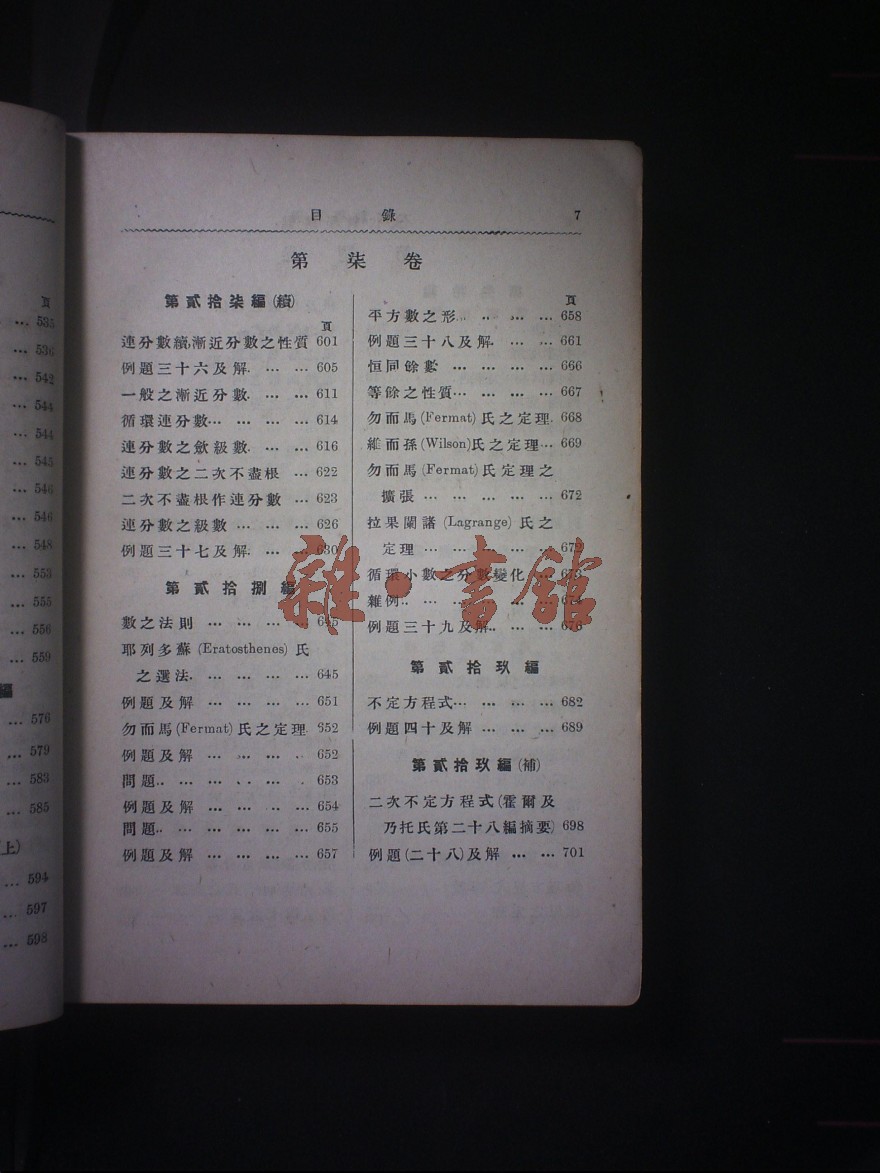 頁
... 535
... 536
... 542
... 544
... 544
... 545
... 546
... 546
... 548
... 553
... 555
... 556
... 559
編
... 576
... 579
... 583
... 585
(上)
... 594
... 597
... 598
目錄 7
第柒卷
第貳拾柒編(續)
頁
連分數續,漸近分數之性質 601
例題三十六及解. ... ... 605
一般之漸近分數. ... ... 611
循環連分數... ... ... ... 614
連分數之斂級數. ... ... 616
連分數之二次不盡根 ... 622
二次不盡根作連分數 ... 623
連分數之級數 ... ... ... 626
例題三十七及解. ... ... 630
第貳拾捌編
數之法則 ... ... ... ... 645
耶列多蘇 (Eratosthenes) 氏
之選法. ... ... ... ... 645
例題及解 ... ... ... ... 651
勿而馬(Fermat)氏之定理. 652
例題及解 ... ... ... ... 652
問題.. ... ... ... ... ... 653
例題及解 ... ... ... ... 654
問題.. ... ... ... ... ... 655
例題及解 ... ... ... ... 657
頁
平方數之形.. ... ... ... 658
例題三十八及解. ... ... 661
恒同餘數 ... ... ... ... 666
等餘之性質... ... ... ... 667
勿而馬(Fermat)氏之定理. 668
維而孫(Wilson)氏之定理... 669
勿而馬(Fermat)氏定理之
擴張 ... ... ... ... ... 672
拉果闌諸 (Lagrange) 氏之
定理 ... ... ... ...
循環小數之分數變化 ... 673
雜例.. ... ... ... ... ... 674
例題三十九及解.. ... ... 676
第貳拾玖編
不定方程式... ... ... ... 682
例題四十及解 ... ... ... 689
第貳拾玖編(補)
二次不定方程式(霍爾及
乃托氏第二十八編摘要) 698
例題(二十八)及解 ... ... 701
雜·書館